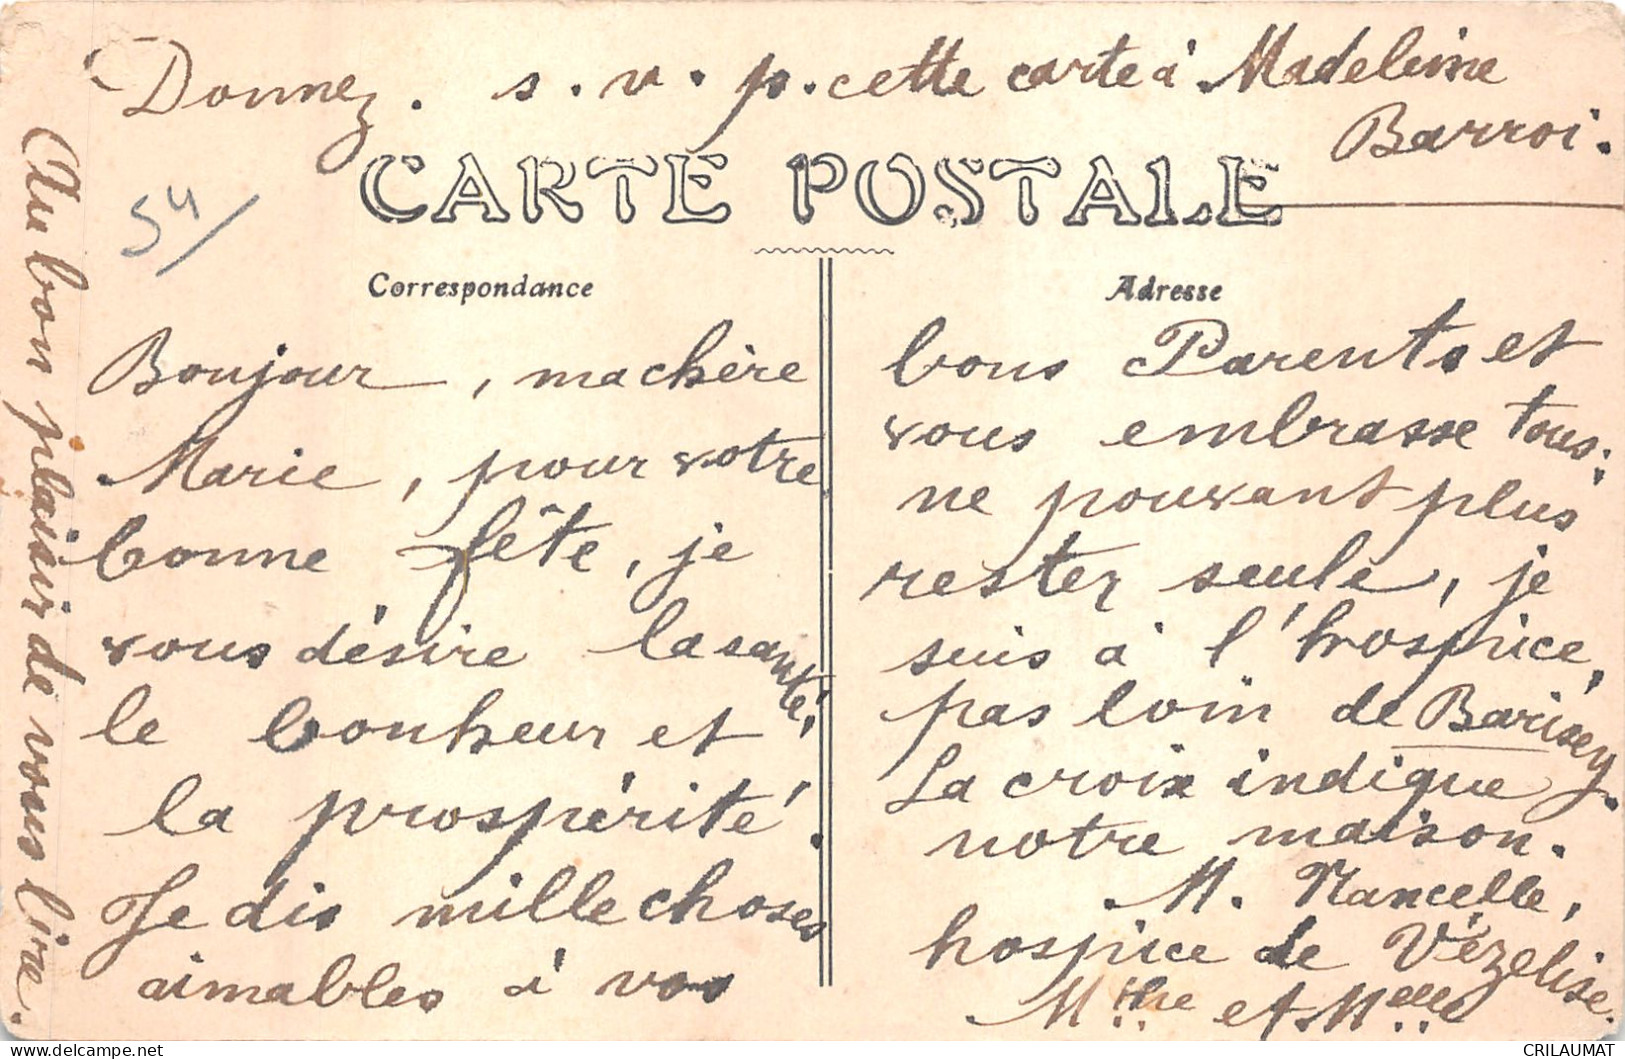 Donnez. s. v. p. cette carte à Madeleine
Barroi.
CARTE POSTALE
54/
Correspondance
Bonjour, ma chère
Marie, pour votre
bonne fête, je
vous désire la santé,
le bonheur et
la prospérité.
Je dis mille choses
aimables à vos
Adresse
bons Parents et
vous embrasse tous;
ne pouvant plus
rester seule, je
suis à l'hospice,
pas loin de Barisey
La croix indique
notre maison.
M. Nancelle,
hospice de Vézelise.
Mthe et Melle
Au bon plaisir de vous lire.
CRILAUMAT